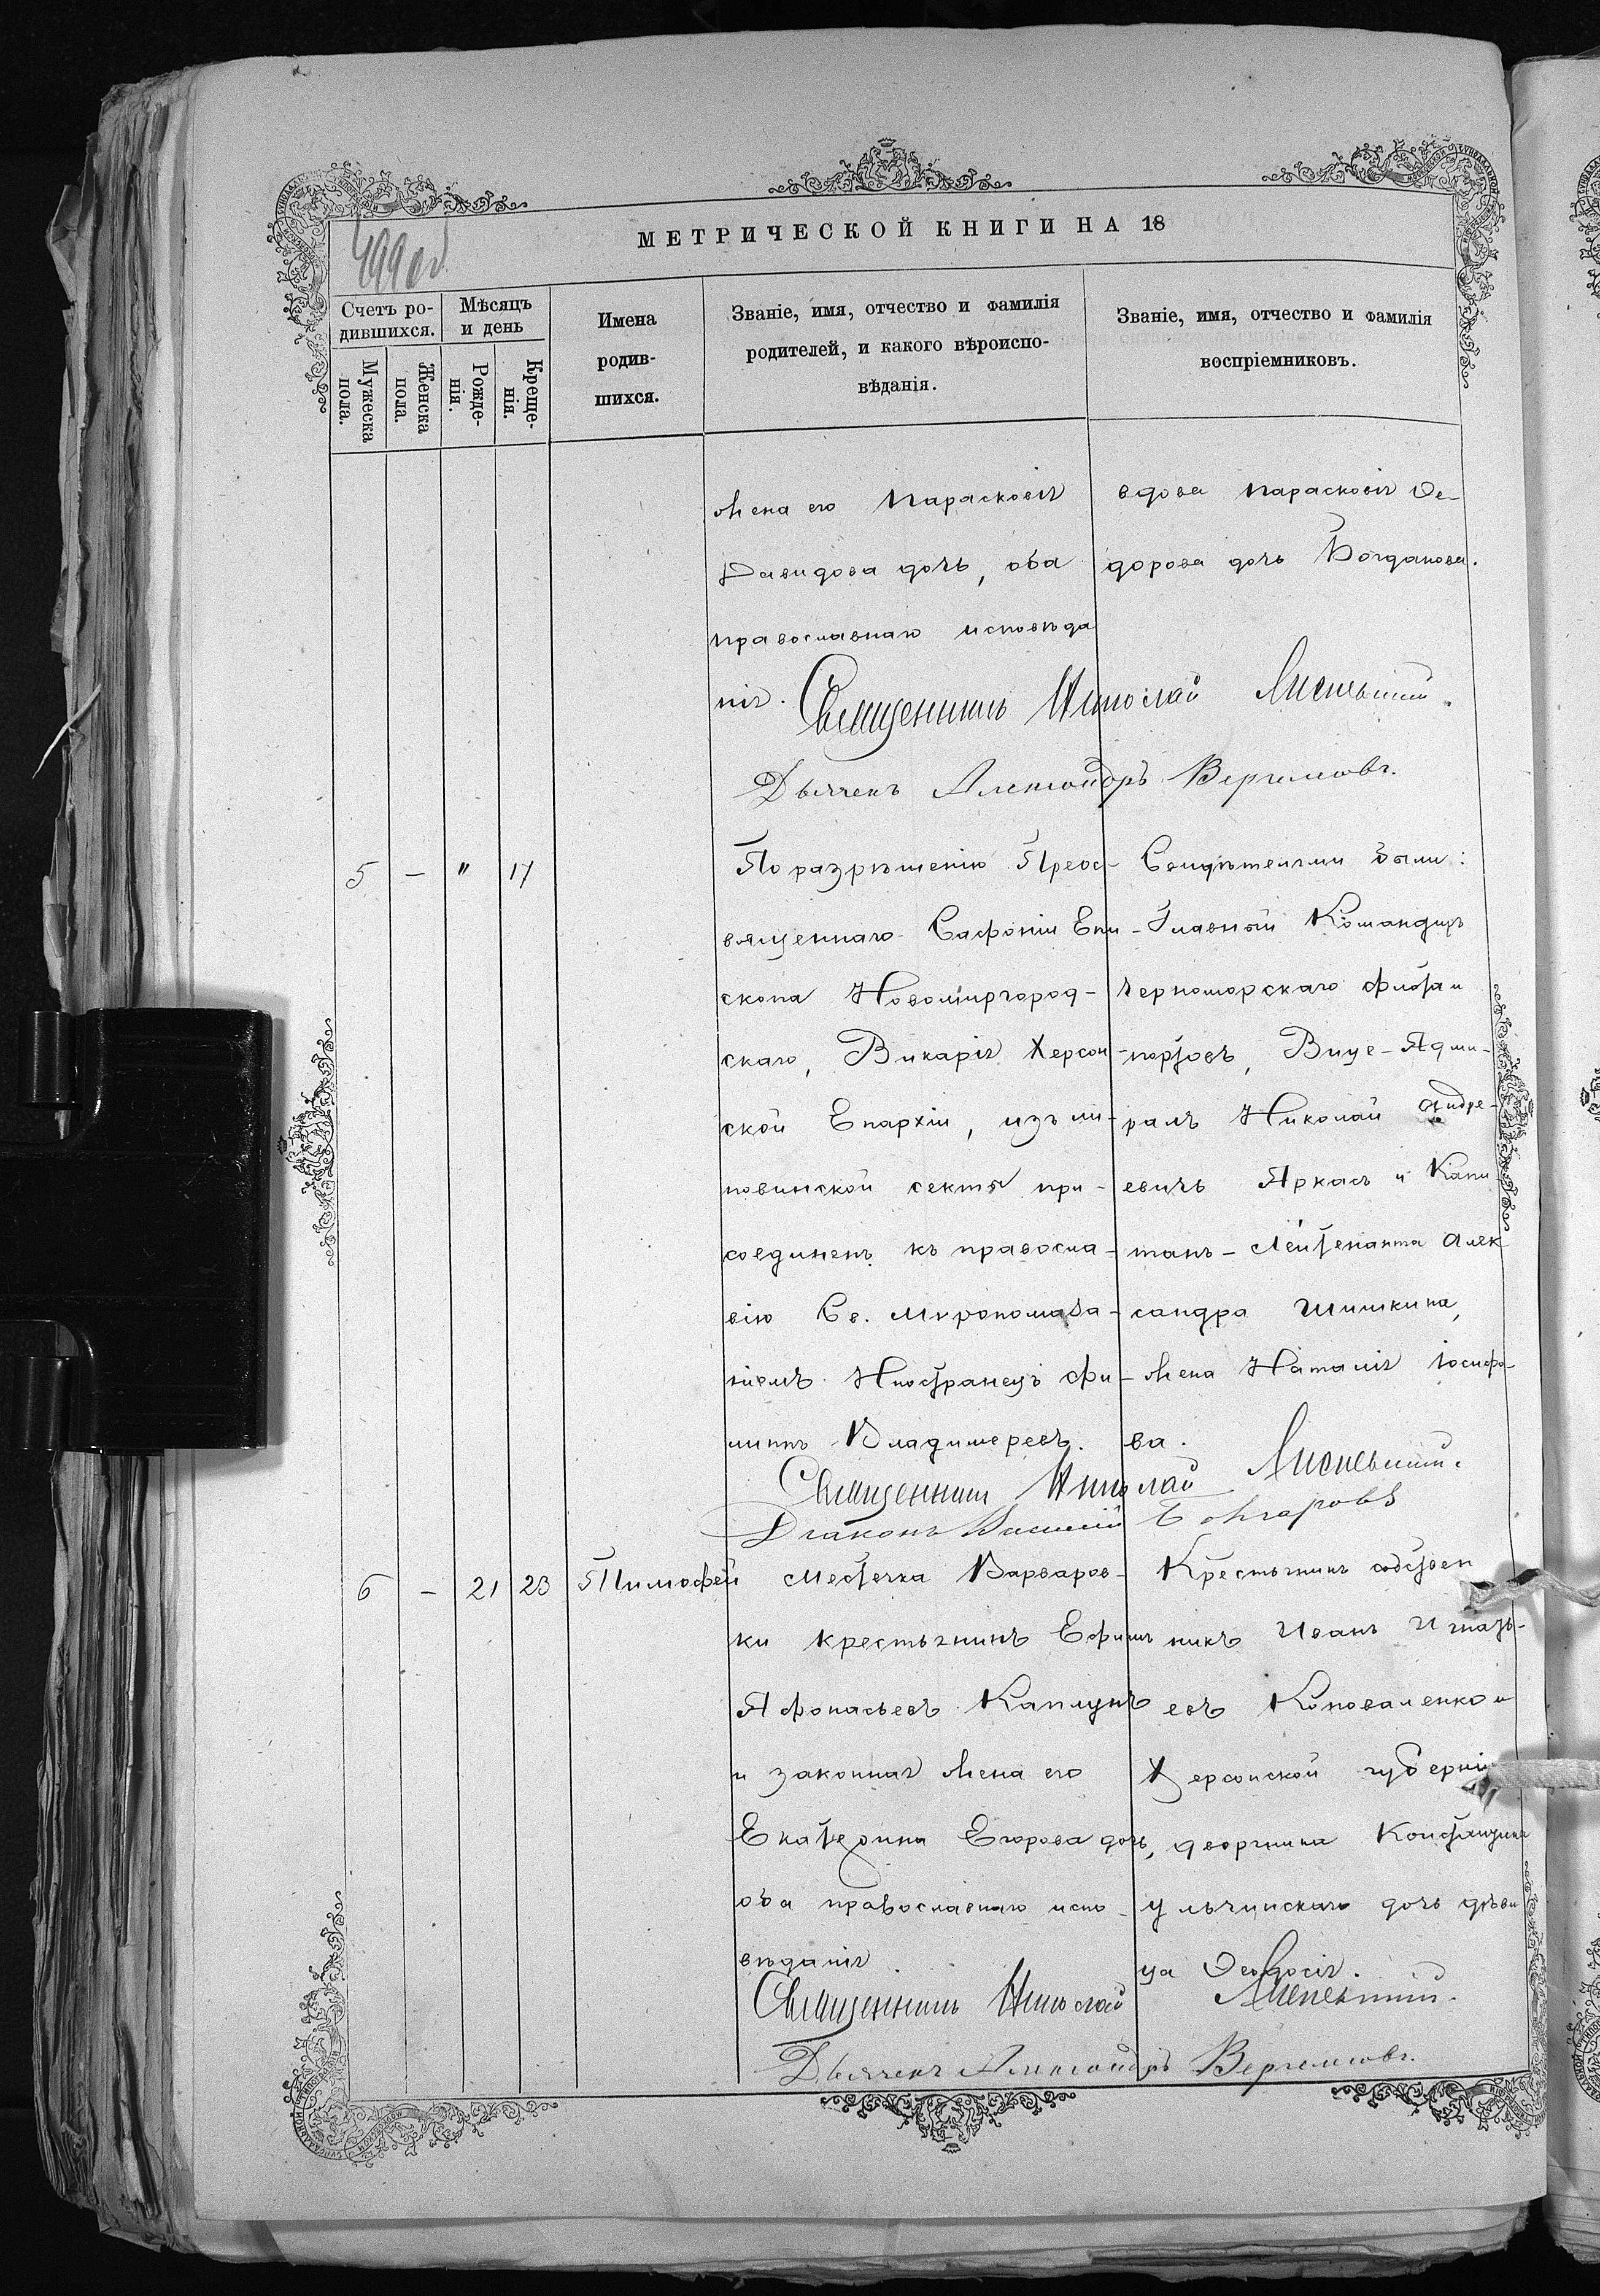 МЕТРИЧЕСКОЙ КНИГИ НА 18
199 об
Счетъ ро-
дившихся.
Мужеска
пола.
Женска
пола.
Мѣсяцъ
и день
Рожде-
нія.
Креще-
нія.
Имена
родив-
шихся.
Званіе, имя, отчество и фамилія
родителей, и какого вѣроиспо-
вѣданія.
Званіе, имя, отчество и фамилія
воспріемниковъ.
жена его Парасковія
Давидова дочь, оба
православнаго исповѣда
нія.
вдова Парасковія Ѳе-
дорова дочь Богданова.
Священникъ Николай Лисневскій.
Дьячекъ Александръ
5 — " 17
По разрѣшенію Преос-
вященнаго Сафонія Епи-
скопа Новомиргород-
скаго, Викарія Херсон-
ской Епархіи, изъ ли-
повинской секты при-
соединенъ къ правосла-
вію Св. Мѵропомаза-
ніемъ Иностранецъ Фи-
липъ Владимеревъ.
Свидѣтелями были:
Главный Командиръ
Черноморскаго флота и
портовъ, Вице-Адми-
ралъ Николай Андре-
евичъ Аркасъ и Капи-
танъ-Лейтенанта Алек
сандра Шишкина,
жена Наталія Іосифо-
ва.
Священникъ Николай Лисневскій.
Діаконъ Василій
6 — 21 23 Тимофей
Местечка Варваров-
ки крестьянинъ Ефимъ
Афонасьевъ Каплунъ
и законная жена его
Екатерина Егорова дочь,
оба православнаго испо-
вѣданія.
Крестьянинъ собствен
никъ Иванъ Игнать-
евъ Коноваленко и
Херсонской губерніи
дворянина Константина
Ульчинскаго дочь дѣви
ца Ѳеодосія.
Священникъ Николай Лисневскій.
Дьячекъ Александръ